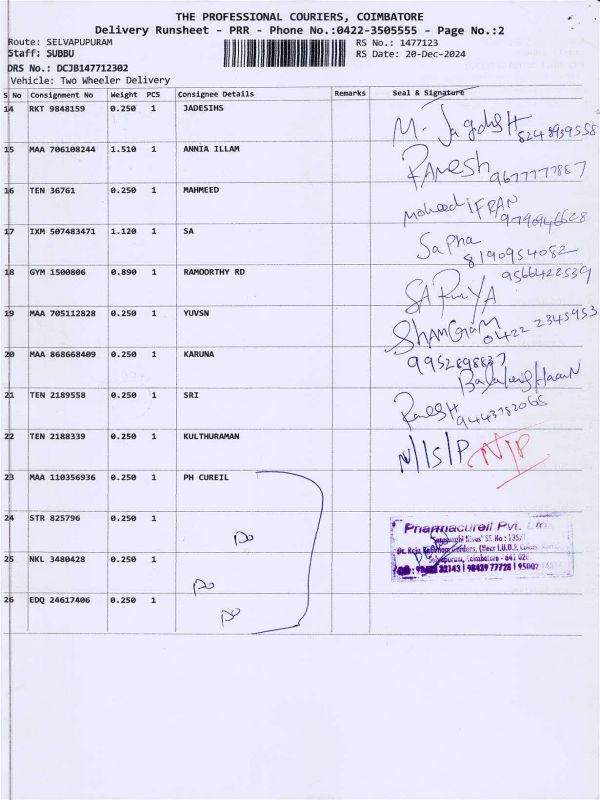 THE PROFESSIONAL COURIERS, COIMBATORE
Delivery Runsheet - PRR - Phone No.:0422-3505555 - Page No.:2
Route: SELVAPUPURAM
RS No.: 1477123
Staff: SUBBU
RS Date: 20-Dec-2024
DRS No.: DCJB147712302
Vehicle: Two Wheeler Delivery
S No Consignment No Weight PCS Consignee Details Remarks Seal & Signature
14 RKT 9848159 0.250 1 JADESIHS
M. Jagdish 8248939558
15 MAA 706108244 1.510 1 ANNIA ILLAM
RAMESH 9677777887
16 TEN 36761 0.250 1 MAHMEED
Moheed IFRAN
9790946628
17 IXM 507483471 1.120 1 SA
Sapha
8190954082
18 GYM 1500806 0.890 1 RAMOORTHY RD
9566422539
19 MAA 705112828 0.250 1 YUVSN
0422 2345953
20 MAA 868668409 0.250 1 KARUNA
9952898837
21 TEN 2189558 0.250 1 SRI
RAMESH 9443782066
22 TEN 2188339 0.250 1 KULTHURAMAN
N/S/P N/P
23 MAA 110356936 0.250 1 PH CUREIL
24 STR 825796 0.250 1
Do
Pharmacureil Pvt. Ltd.
25 NKL 3480428 0.250 1
Do
26 EDQ 24617406 0.250 1
Do